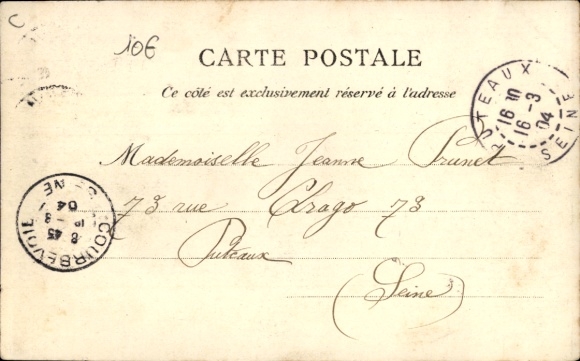 C
10€
CARTE POSTALE
Ce côté est exclusivement réservé à l'adresse
PUTEAUX
16 10
16 -3
04
SEINE
Mademoiselle Jeanne Prunet
73 rue Arago 73
Puteaux
(Seine)
COURBEVOIE
8 45
04
SEINE